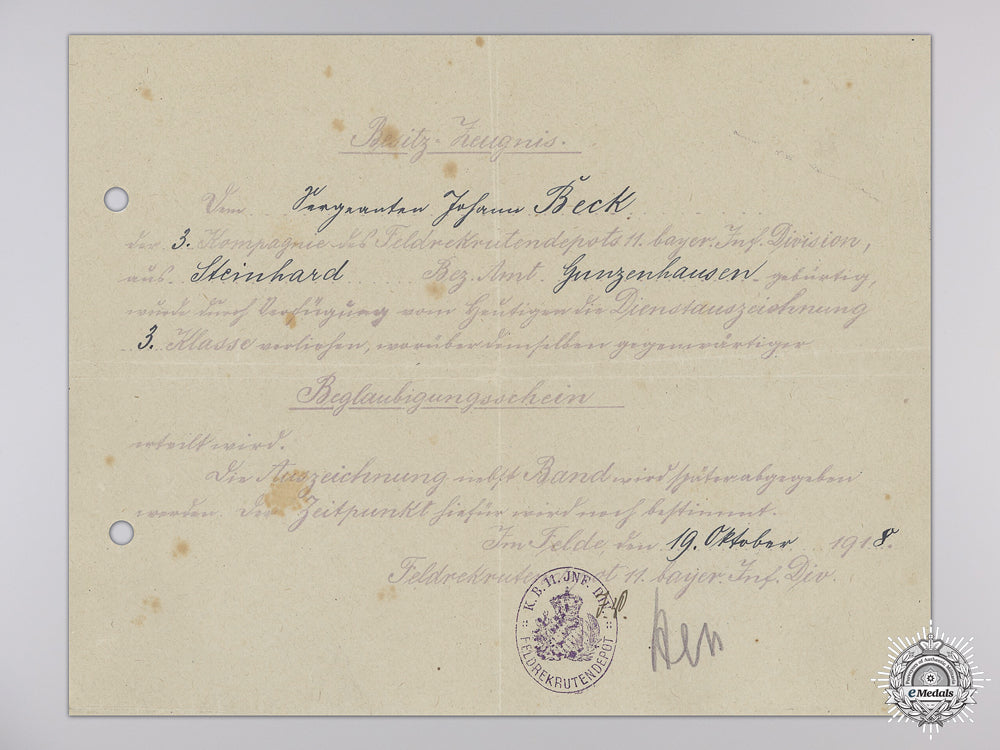 Besitz-Zeugnis.
Dem Sergeanten Johann Beck
der 3. Kompagnie des Feldrekrutendepots 11. bayer. Inf. Division,
aus Steinhard Bez. Amt Gunzenhausen gebürtig,
wurde durch Verfügung vom Heutigen die Dienstauszeichnung
3. Klasse verliehen, worüber demselben gegenwärtiger
Beglaubigungsschein
erteilt wird.
Die Auszeichnung nebst Band wird später abgegeben
werden. Der Zeitpunkt hiefür wird noch bestimmt.
Im Felde den 19. Oktober 1918.
Feldrekrutendepot 11. bayer. Inf. Div.
K. B. 11. JNF. DIV.
FELDREKRUTENDEPOT
eMedals